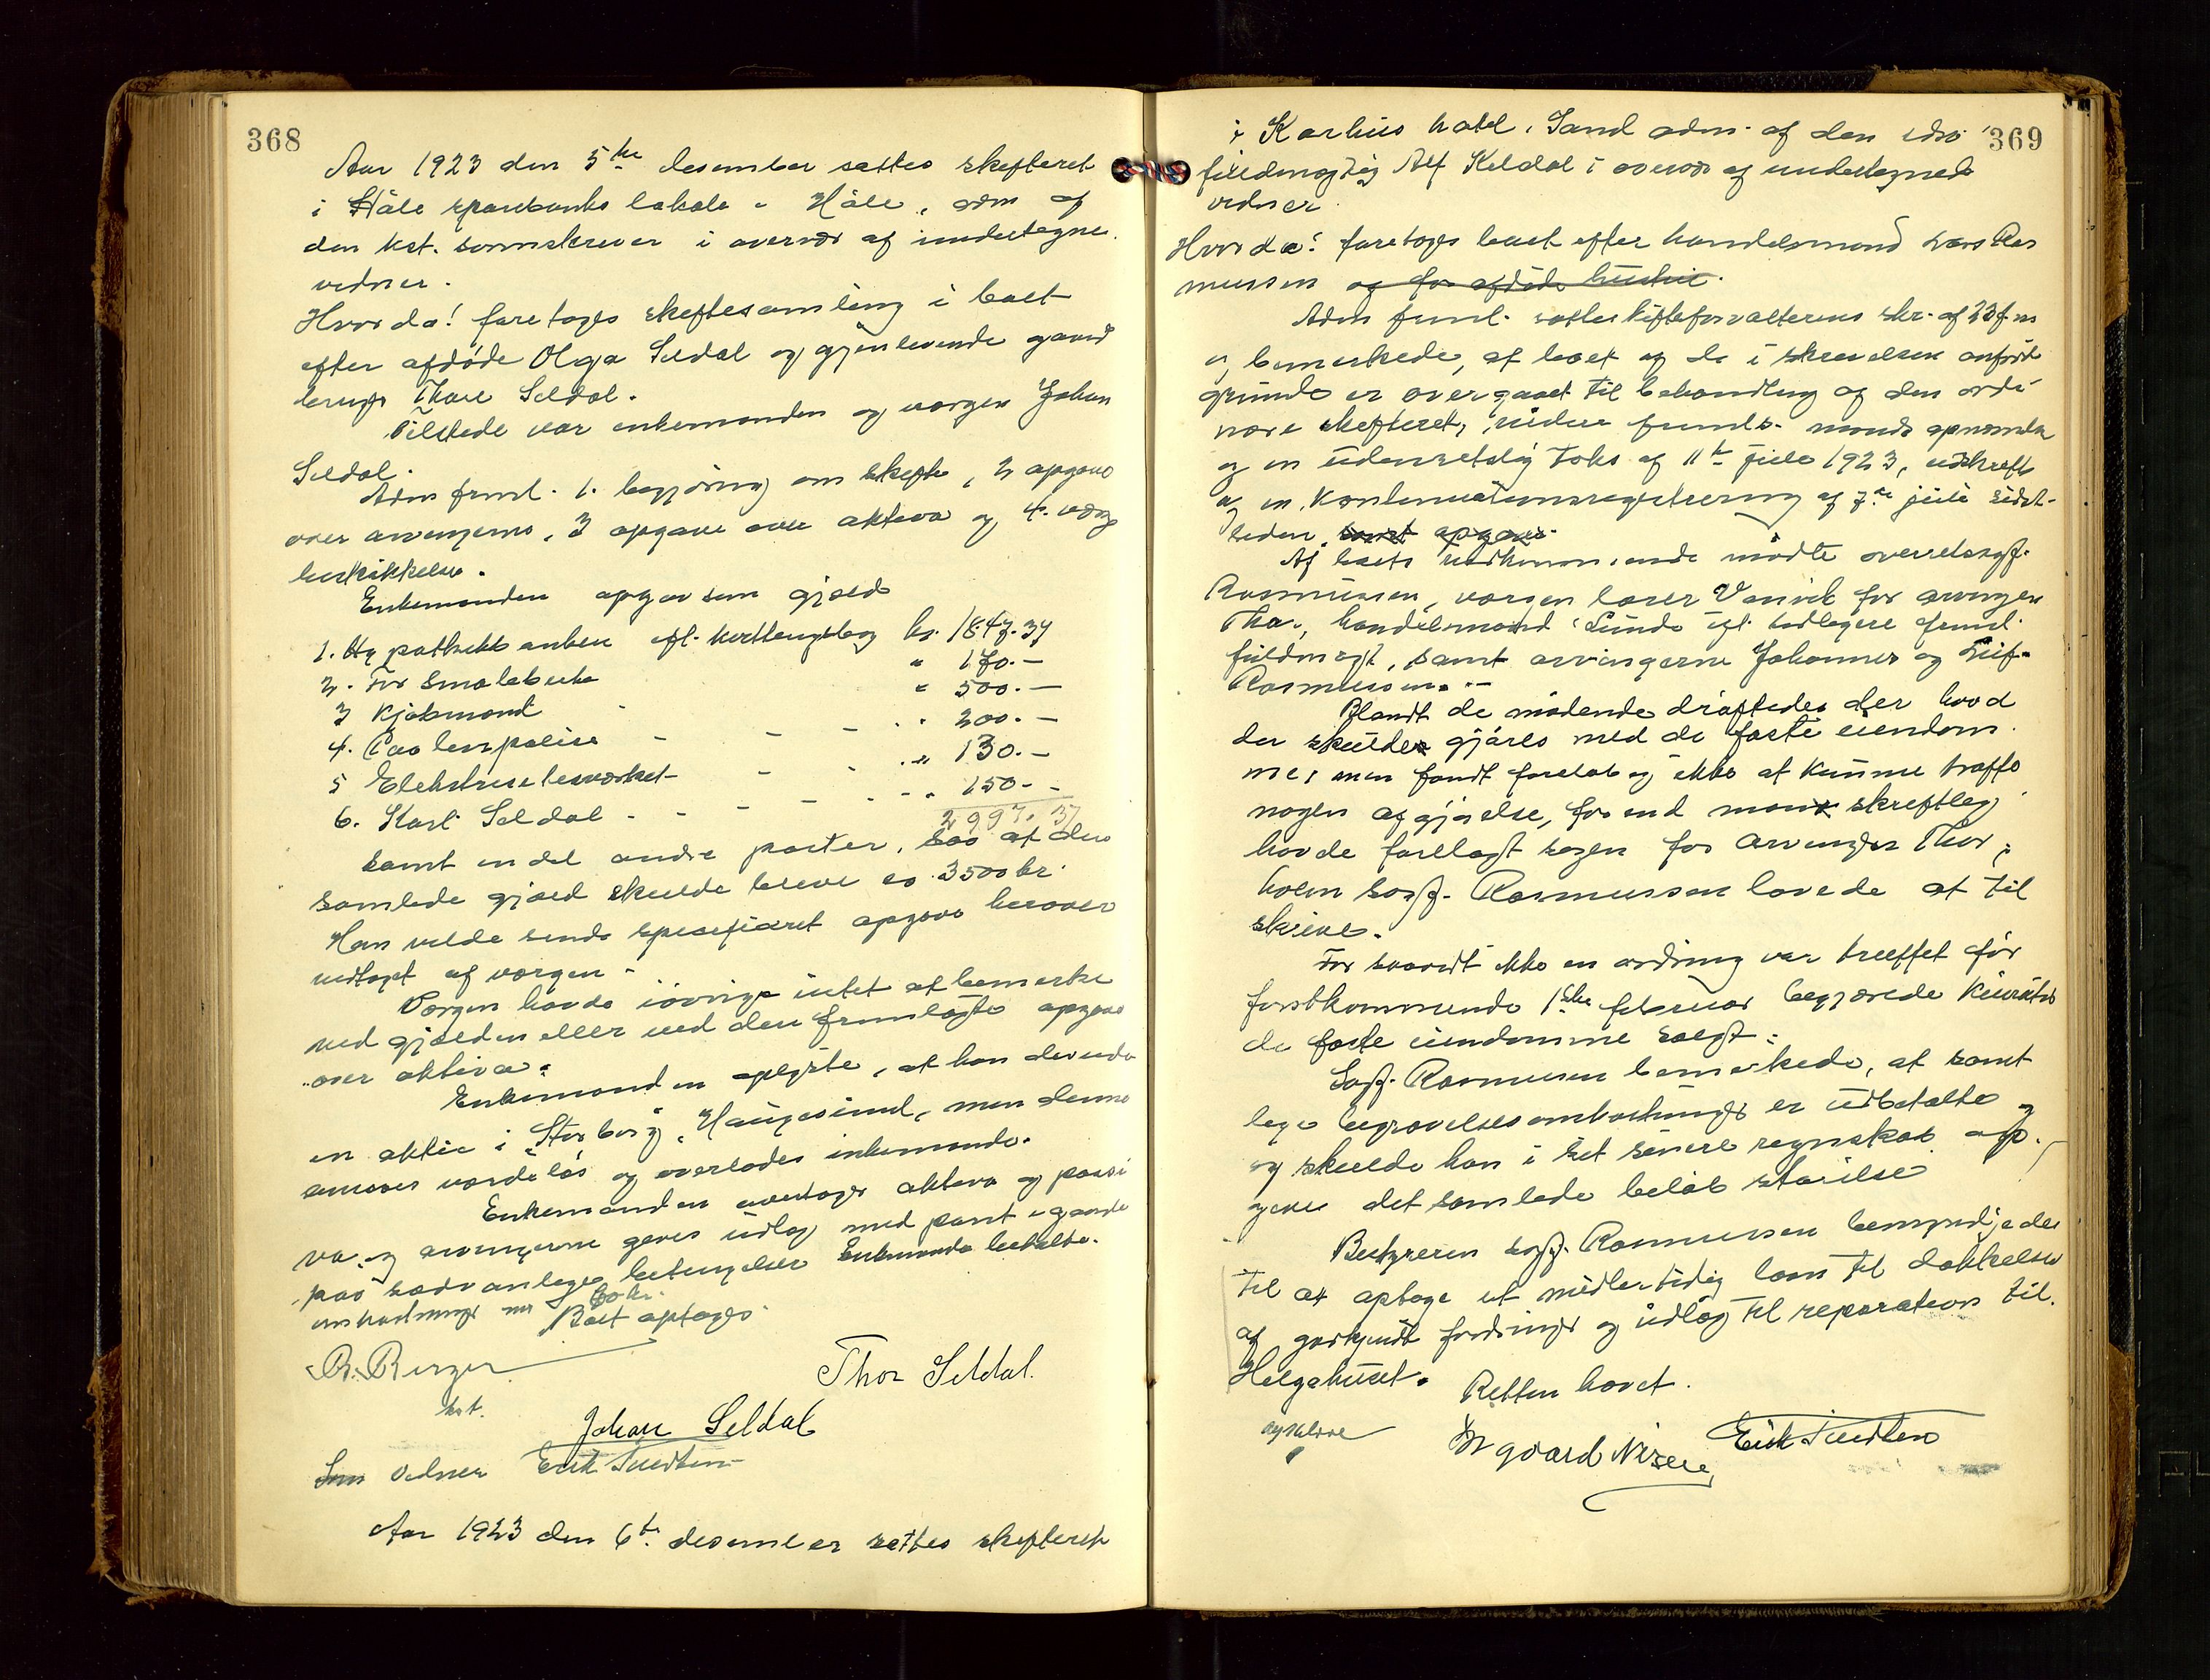 368
Aar 1923 den 5te desember sattes skifteret
i Håle sparebanks lokale i Håle, adm af
den kst. sorenskriver i overvær af undertegne.
vidner.
Hvorda! foretoges skiftesamling i boet
efter afdøde Olga Seldal og gjenlevende gaard
bruger Thore Seldal.
Tilstede var enkemanden og vergen Johan
Seldal.
Adm freml. 1. begjæring om skifte, 2 opgave
over arvingerne, 3 opgave over aktiva og 4. værge
beskikkelse.
Enkemanden opgav som gjæld
1. Hypothekbanken ifl. kvitteringsbog kr. 1847.37
2. For Smalebruke " 170.-
3 Kjøbmænd " 500.-
4. Paa levepolise - - - " 200.-
5 Elektrisitetsverket - - " 130.-
6. Karl Seldal - - - - - " 150.-
2997.37
samt en del andre poster, saa at den
samlede gjæld skulde bleve ca 3500 kr.
Han vilde sende spesifiseret opgave herover
vedtaget af vergen.
Vergen havde iøvrigt intet at bemerke
ved gjælden eller ved den fremlagte opgave
over aktiva.
Enkemanden oplyste, at han
en aktie i "Storborg", Haugesund, men denne
ansees værdiløs og overlodes enkemanden.
Enkemanden overtoger aktiva og passi
va og arvingerne gives udlæg med pant i gaarde
paa sædvanlige betingelser Enkemanden betalte
omkostninger med 60 kr.
Boet optoges.
B. Berger
kst.
Thor Seldal.
Johan Seldal
Som vidner Erik Tveiten
Aar 1923 den 6te desember sattes skifteret
369
i Karhus hotel, Sand adm. af den edsv
fuldmægtig Alf Keldal i overvær af undertegnede
vidner
Hvorda! foretoges boet efter handelsmand Lars Ras
mussen og for afdøde hustru.
Adm freml. skifteforvalterens skr. af 23 f.m
og bemerkede, at boet af de i skrivelsen anførte
grunde er overgaaet til behandling af den ordi
nære skifteret, videre freml. mands opnævnelse
og en udenretslig takst af 11te juli 1923, udskrift
af en Konkursregistrering af 7de juli sidst-
leden, samt opgave.
Af boets vedkommende mødte overretssagf.
Rasmussen, vergen lærer Vanvik for arvingen
Thor, handelsmand Lunde ifl. tidligere freml.
fuldmagt, samt arvingerne Johannes og Leif
Rasmussen.
Blandt de mødende drøftedes der hvad
der skulde gjøres med de faste eiendom.
me, men fandt foreløbig ikke at kunne træffe
nogen afgjørelse, før end man skriftlig
havde forelagt sagen for arvingen Thor,
hvem sagf. Rasmussen lovede at til
skrive.
For saavidt ikke en ordning var truffet før
førstkommende 1ste februar begjærede
de faste eiendomme solgt.
Sagf. Rasmussen bemerkede, at samt
lige begravelsesomkostninger er udbetalte
og skulde han i sit senere regnskab op
give det samlede beløb størrelse
Bestyreren sagf. Rasmussen bemyndigedes
til at optage et midlertidig laan til dækkelse
af godkjendte fordringer og udlæg til reparation til.
Helgahuset.
Retten hævet.
Ingvard Erik Tveiten